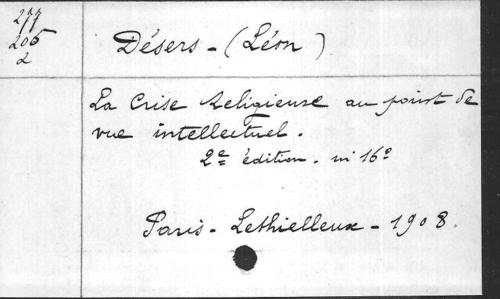 277
205
2
Désers - (Léon)
La Crise Religieuse au point de
vue intellectuel.
2e édition. in 16º
Paris - Lethielleux - 1908.